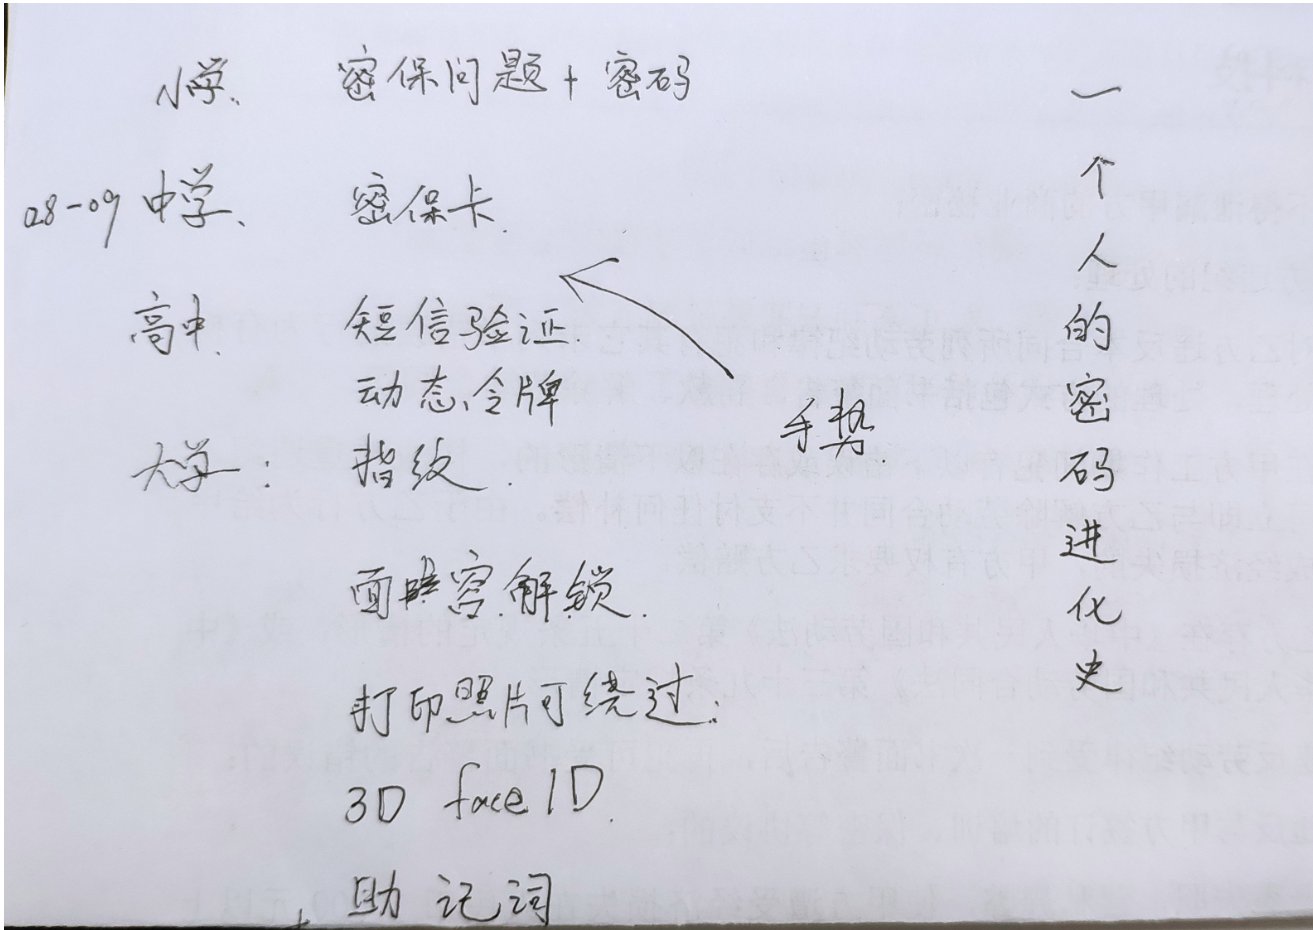 小学、 密保问题+密码
08-09 中学、 密保卡.
高中、 短信验证.
动态令牌
大学: 指纹.
面容解锁.
打印照片可绕过:
3D face ID.
助记词
手势
一个人的密码进化史